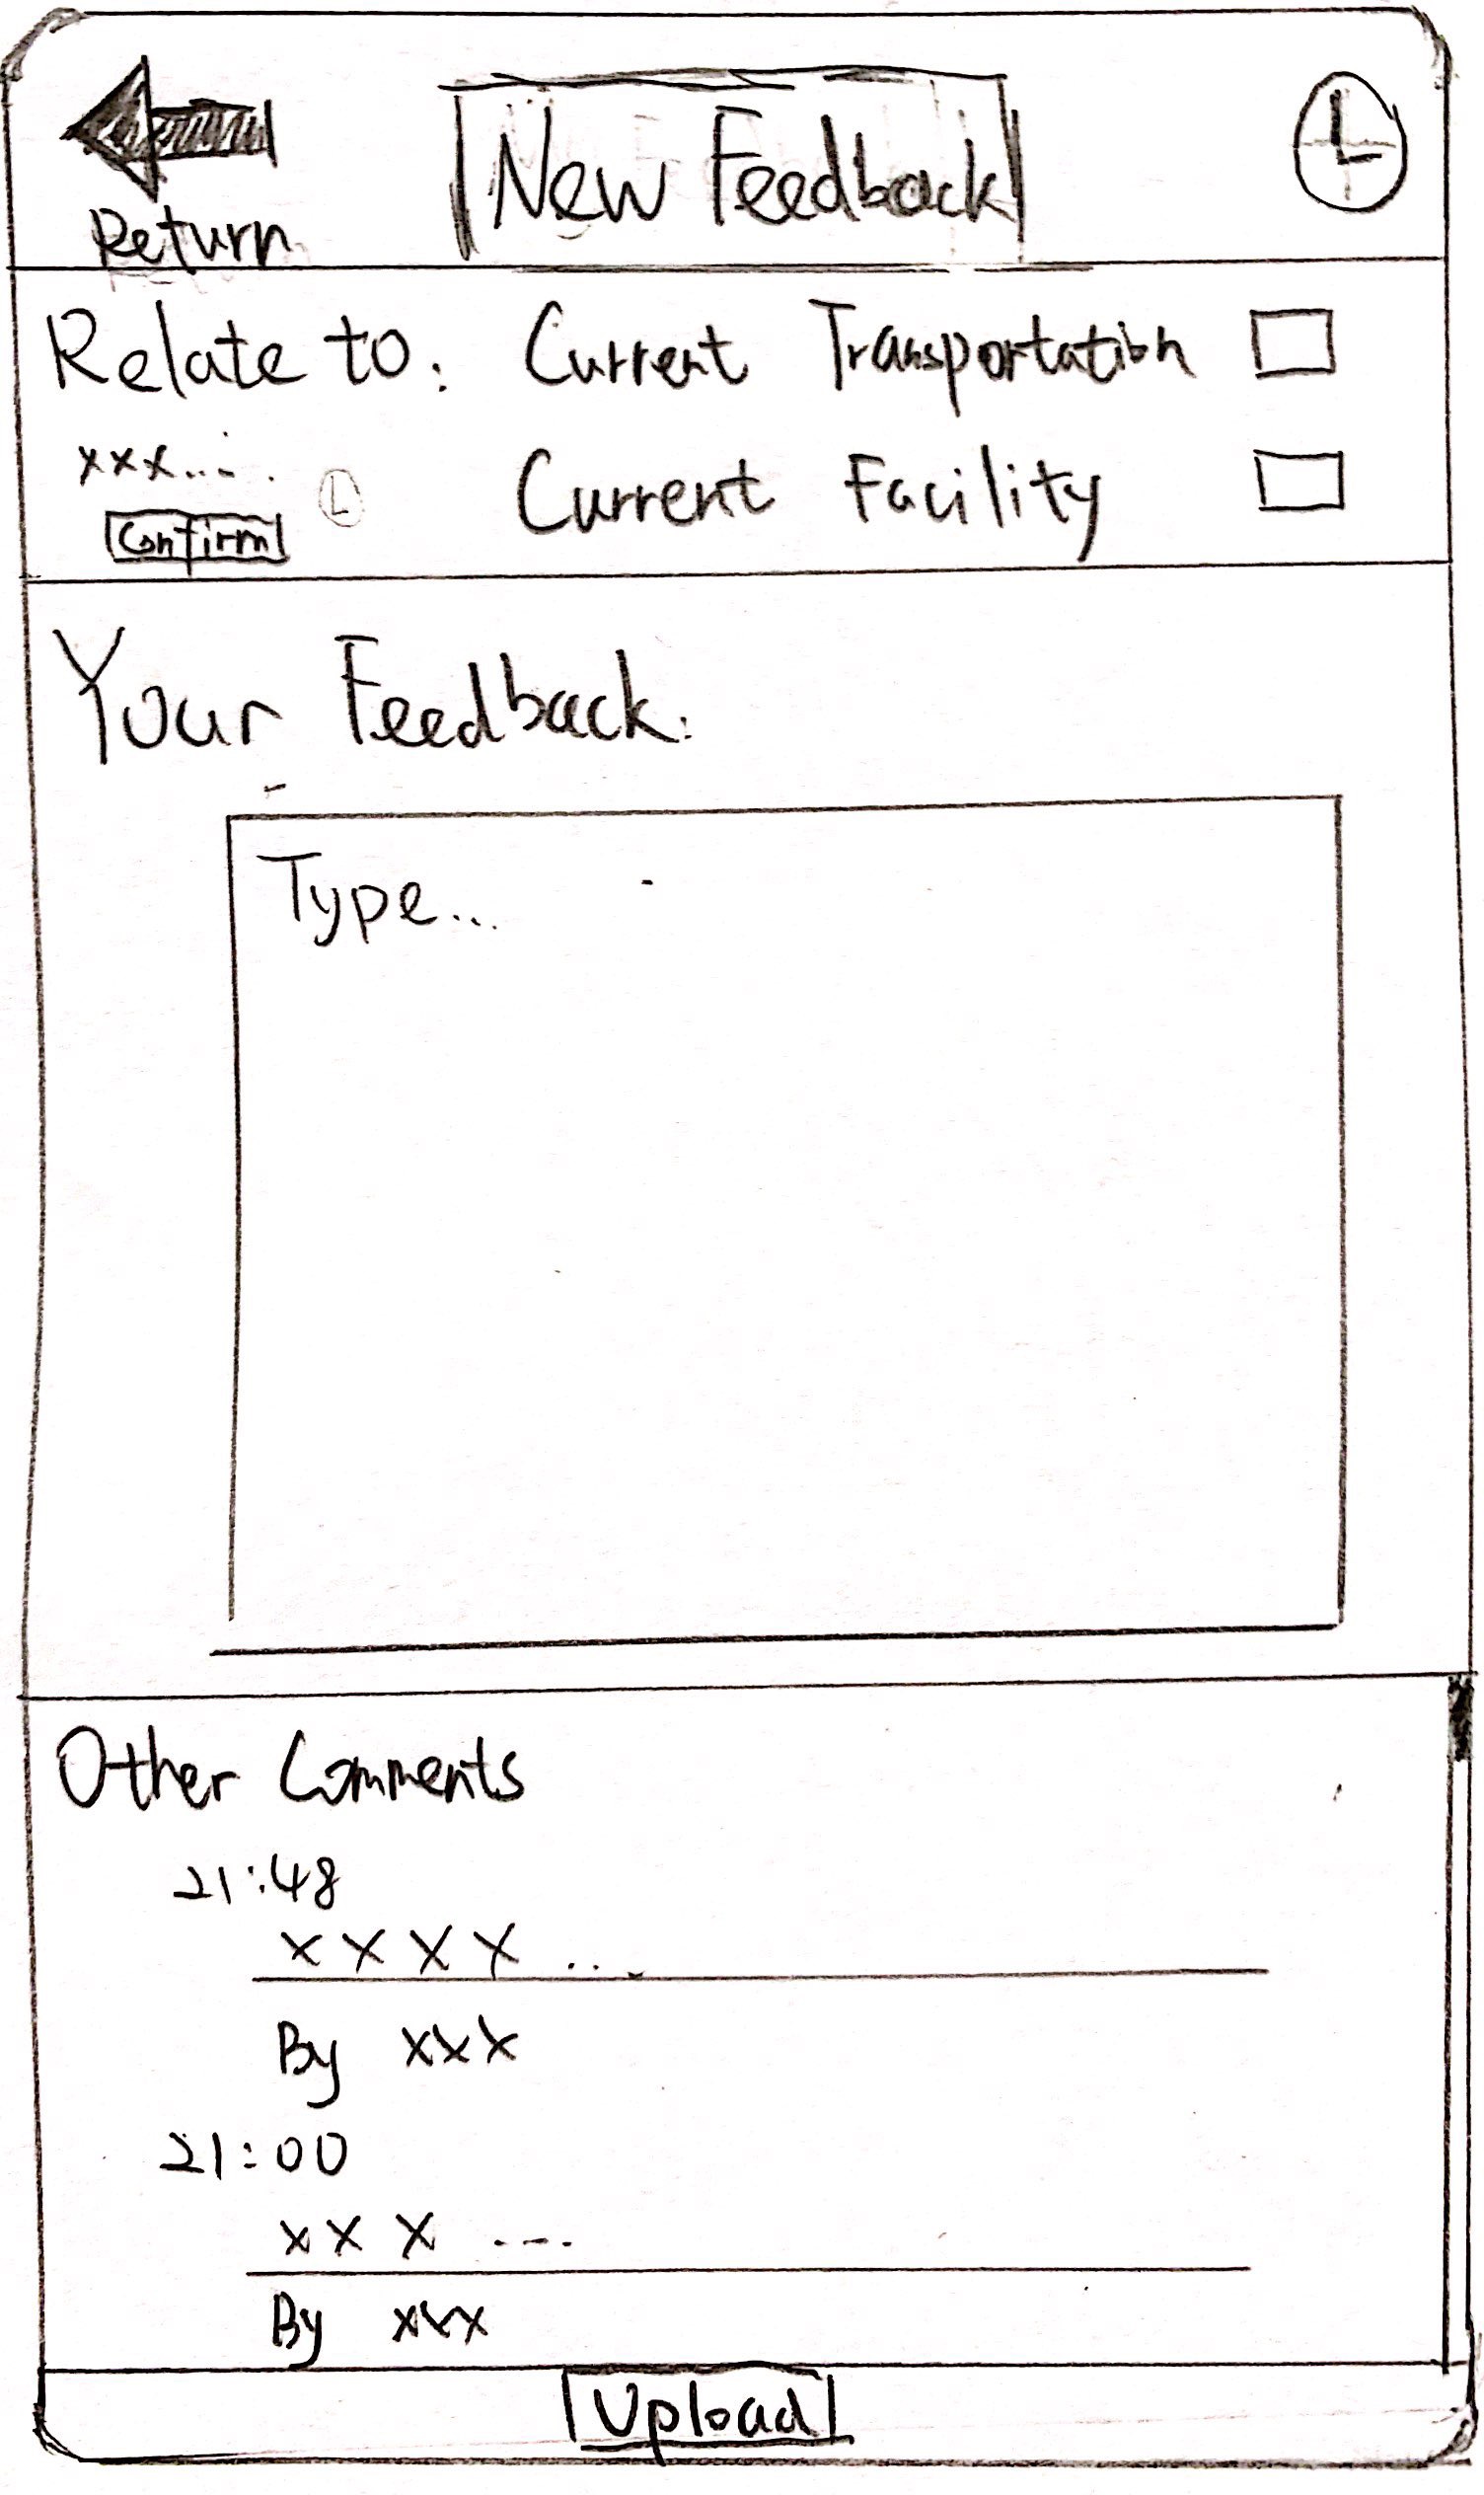 New Feedback
Return
Relate to: Current Transportation
xxx....
Current Facility
Confirm
Your Feedback:
Type...
Other Comments
21:48
xxxx...
By xxx
21:00
xxx ...
By xxx
Upload